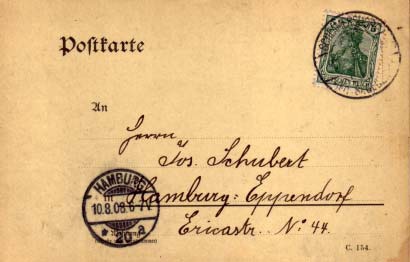 Postkarte
An
Herrn
Jos. Schubert
Hamburg-Eppendorf
Ericastr. No 44.
HAMBURG
10.8.08. 6-7
* 20 a
C. 154.